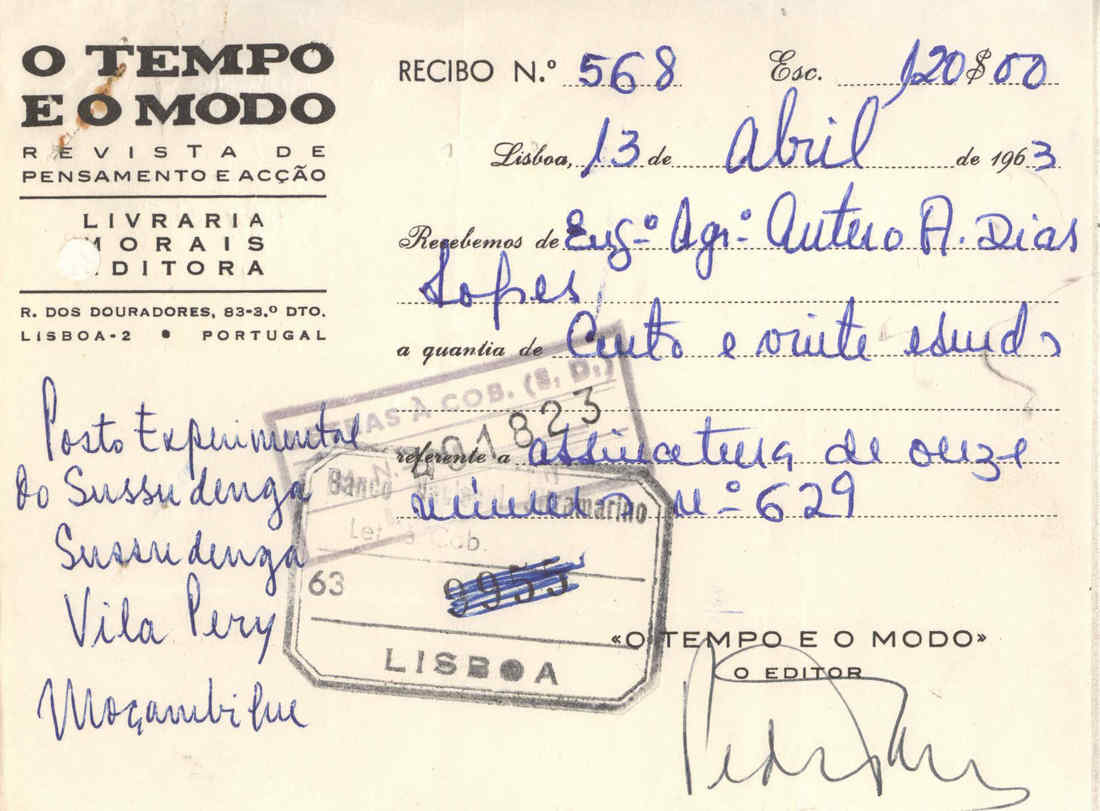 O TEMPO
E O MODO
REVISTA DE
PENSAMENTO E ACÇÃO
LIVRARIA
MORAIS
EDITORA
R. DOS DOURADORES, 83-3.º DTO.
LISBOA-2 • PORTUGAL
RECIBO N.º 568 Esc. 120$00
Lisboa, 13 de Abril de 1963
Recebemos de Eng.º Agr.º Antero A. Dias
Lopes
a quantia de Cento e vinte escudos
referente a assinatura de onze
números N.º 629
Posto Experimental
do Sussudenga
Sussudenga
Vila Pery
Moçambique
À COB. (S. D.)
401823
Banco Nacional Ultramarino
Let Cob.
63 9955
LISBOA
«O TEMPO E O MODO»
O EDITOR